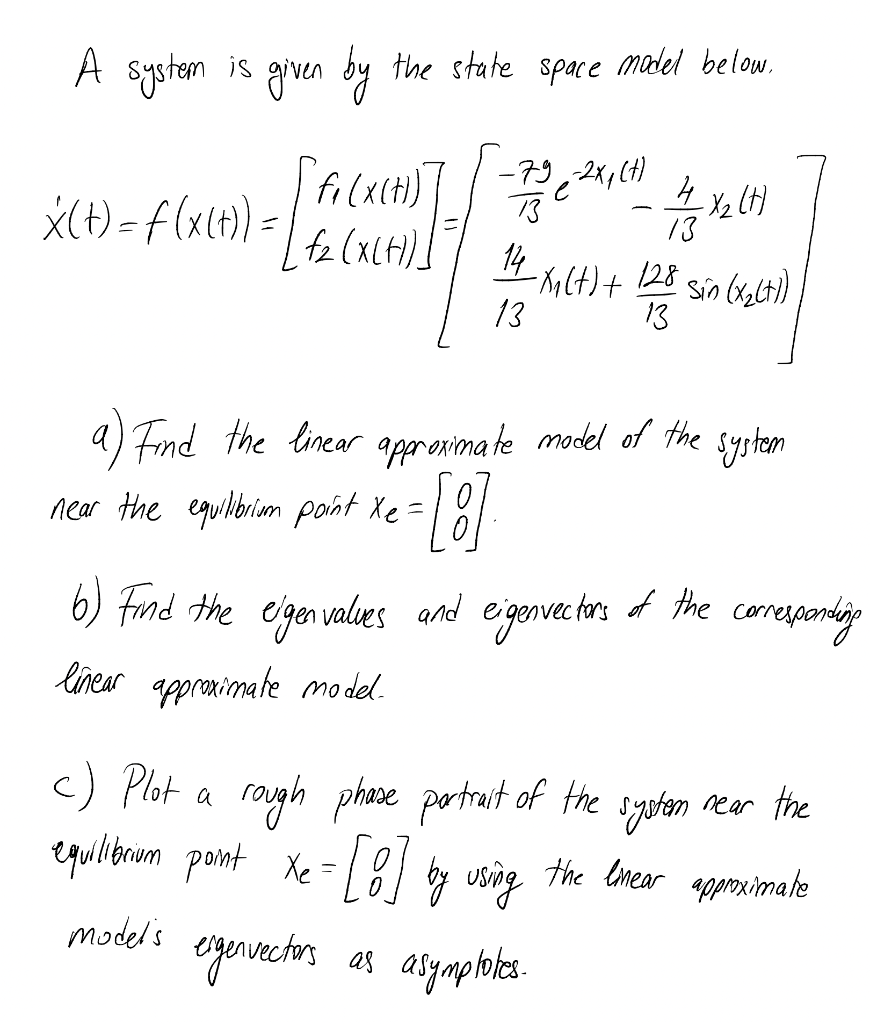 A system is given by the state space model below.
ẋ(t) = f(x(t)) = [f₁(x(t)) ; f₂(x(t))] = [-79/13 e^(-2x₁(t)) - 4/13 x₂(t) ; 14/13 x₁(t) + 128/13 sin(x₂(t))]
a) Find the linear approximate model of the system
near the equilibrium point xe = [0 ; 0].
b) Find the eigenvalues and eigenvectors of the corresponding
linear approximate model.
c) Plot a rough phase portrait of the system near the
equilibrium point xe = [0 ; 0] by using the linear approximate
model's eigenvectors as asymptotes.